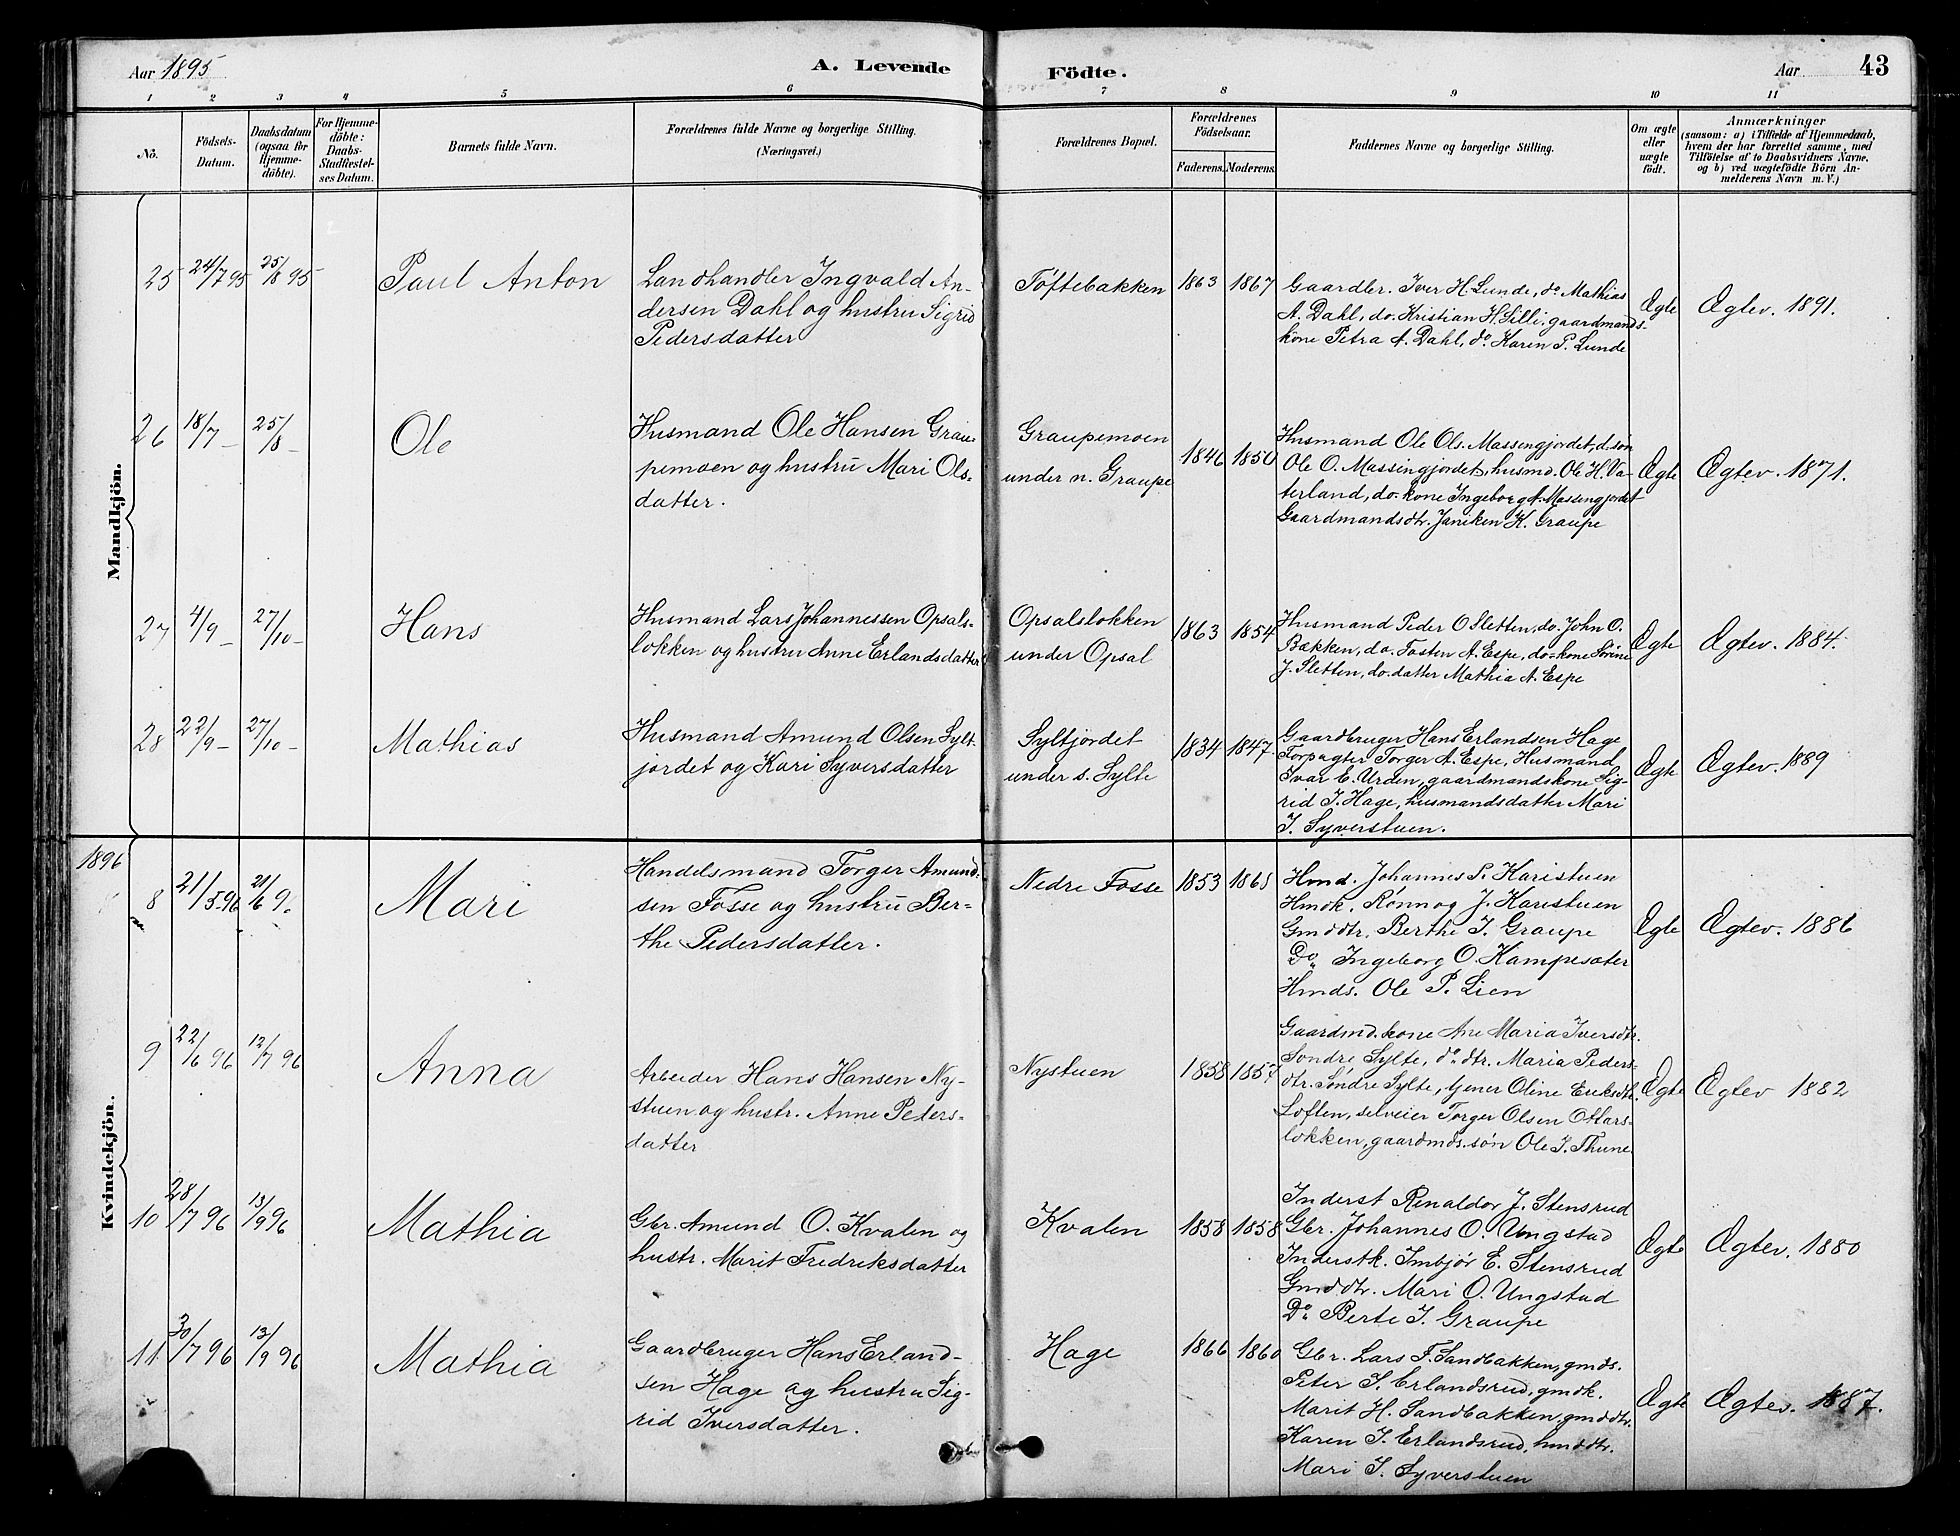 Aar 1895
A. Levende
Födte.
Aar
43
1 2 3 4 5 6 7 8 9 10 11
No.
Födsels-
Datum.
Daabsdatum
(ogsaa for
Hjemme-
döbte).
For Hjemme-
döbte:
Daabs-
Stadfæstel-
ses Datum.
Barnets fulde Navn.
Forældrenes fulde Navne og borgerlige Stilling.
(Næringsvei.)
Forældrenes Bopæl.
Forældrenes
Födselsaar.
Faderens. Moderens.
Faddernes Navne og borgerlige Stilling.
Om ægte
eller
uægte
födt.
Anmærkninger
(saasom: a) i Tilfælde af Hjemmedaab,
hvem der har forrettet samme, med
Tilföielse af to Daabsvidners Navne,
og b) ved uægtefödte Börn An-
melderens Navn m. V.)
Mandkjön.
25
24/7 95
25/8 95
Paul Anton
Landhandler Ingvald An-
dersen Dahl og hustru Sigrid
Pedersdatter
Tøftebakken
1863 1867
Gaardbr. Iver H. Lunde, do Mathias
A. Dahl, do. Kristian H. Silli, gaardmands-
kone Petra A. Dahl, do Karen P. Lunde
Ægte
Ægtev. 1891.
26
18/7 -
25/8 -
Ole
Husmand Ole Hansen Grau-
pemoen og hustru Mari Ols-
datter.
Graupemoen
under n. Graupe
1846 1850
Husmand Ole Ols. Massengjordet, d. søn
Ole O. Massingjordet, husmd. Ole H. Va-
terland, do. kone Ingeborg A. Massengjordet
Gaardmandsdtr. Janiken K. Graupe
Ægte
Ægtev. 1871.
27
4/9 -
27/10 -
Hans
Husmand Lars Johannessen Opsals-
lokken og hustru Anne Erlandsdatter
Opsalslokken
under Opsal
1863 1854
Husmand Peder O Sletten, do. John O.
Bakken, do. Fosten A. Espe, do-kone Sørine
J. Sletten, do. datter Mathia A. Espe
Ægte
Ægtev. 1884.
28
22/9 -
27/10 -
Mathias
Husmand Amund Olsen Sylt-
jordet og Kari Syversdatter
Syltjordet
under s. Sylte
1834 1847.
Gaardbruger Hans Erlandsen Hage
Forpagter Torger A. Espe, Husmand
Ivar E. Urden, gaardmandskone Sig-
rid I. Hage, husmandsdatter Mari
I. Syverstuen.
Ægte
Ægtev. 1889
1896
Kvindekjön.
8
21/5 96
21/6 9.
Mari
Handelsmand Torger Amund-
sen Fosse og hustru Ber-
the Pedersdatter.
Nedre Fosse
1853 1865
Hmd. Johannes P. Karistuen
Hmdk. Rønnog J. Karistuen
Gmddtr. Berthe I. Graupe
Do Ingeborg O. Kampesæter
Hmds. Ole P. Lien
Ægte
Ægtev. 1886
9
22/6 96
12/7 96
Anna
Arbeider Hans Hansen Ny-
stuen og hustr. Anne Peters-
datter
Nystuen
1858 1857
Gaardmd. kone Ane Maria Iversdtr.
Søndre Sylte, do dtr. Maria Peders-
dtr. Søndre Sylte, tjener Oline Eriksdtr.
Loften, selveier Torger Olsen Ottars-
løkken, gaardmds. søn Ole J. Thune.
Ægte
Ægtev 1882
10
28/7 96
13/9 96
Mathia
Gbr. Amund O. Kvalen og
hustr. Marit Fredriksdatter
Kvalen
1858 1858
Inderst Rinaldor J. Stensrud
Gbr. Johannes O. Ungstad
Inderstk. Imbjør E. Stensrud
Gmddtr. Mari O. Ungstad
Do Berte I. Graupe
Ægte
Ægtev. 1880
11
30/7 96
13/9 96
Mathia
Gaardbruger Hans Erland-
sen Hage og hustru Sig-
rid Iversdatter.
Hage
1866 1860
Gbr. Lars F. Sandbakken, gmds.
Peter I. Erlandsrud, gmdk.
Marit H. Sandbakken, gmddtr.
Karen I. Erlandsrud, hmddtr.
Mari I. Syverstuen
Ægte
Ægtev. 1887.